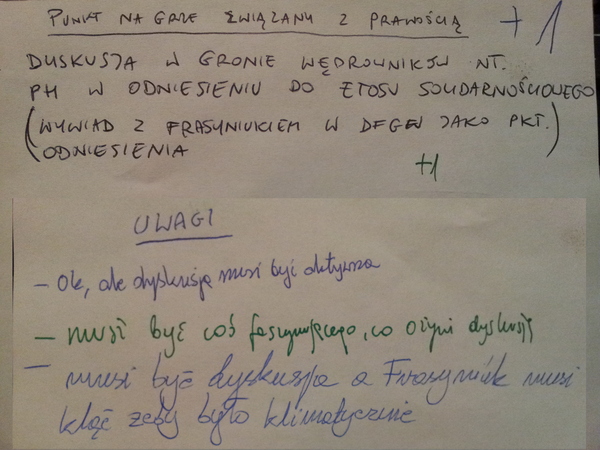 PUNKT NA GRZE ZWIĄZANY Z PRAWOŚCIĄ +1
DYSKUSJA W GRONIE WĘDROWNIKÓW NT.
PH W ODNIESIENIU DO ETOSU SOLIDARNOŚCIOWEGO
(WYWIAD Z FRASYNIUKIEM W DFGEW JAKO PKT.
ODNIESIENIA)
+1
UWAGI
- Ok, ale dyskusja musi być aktywna
- musi być coś fascynującego, co ożywi dyskusję
- musi być dyskusja a Frasyniuk musi
kląć żeby było klimatycznie